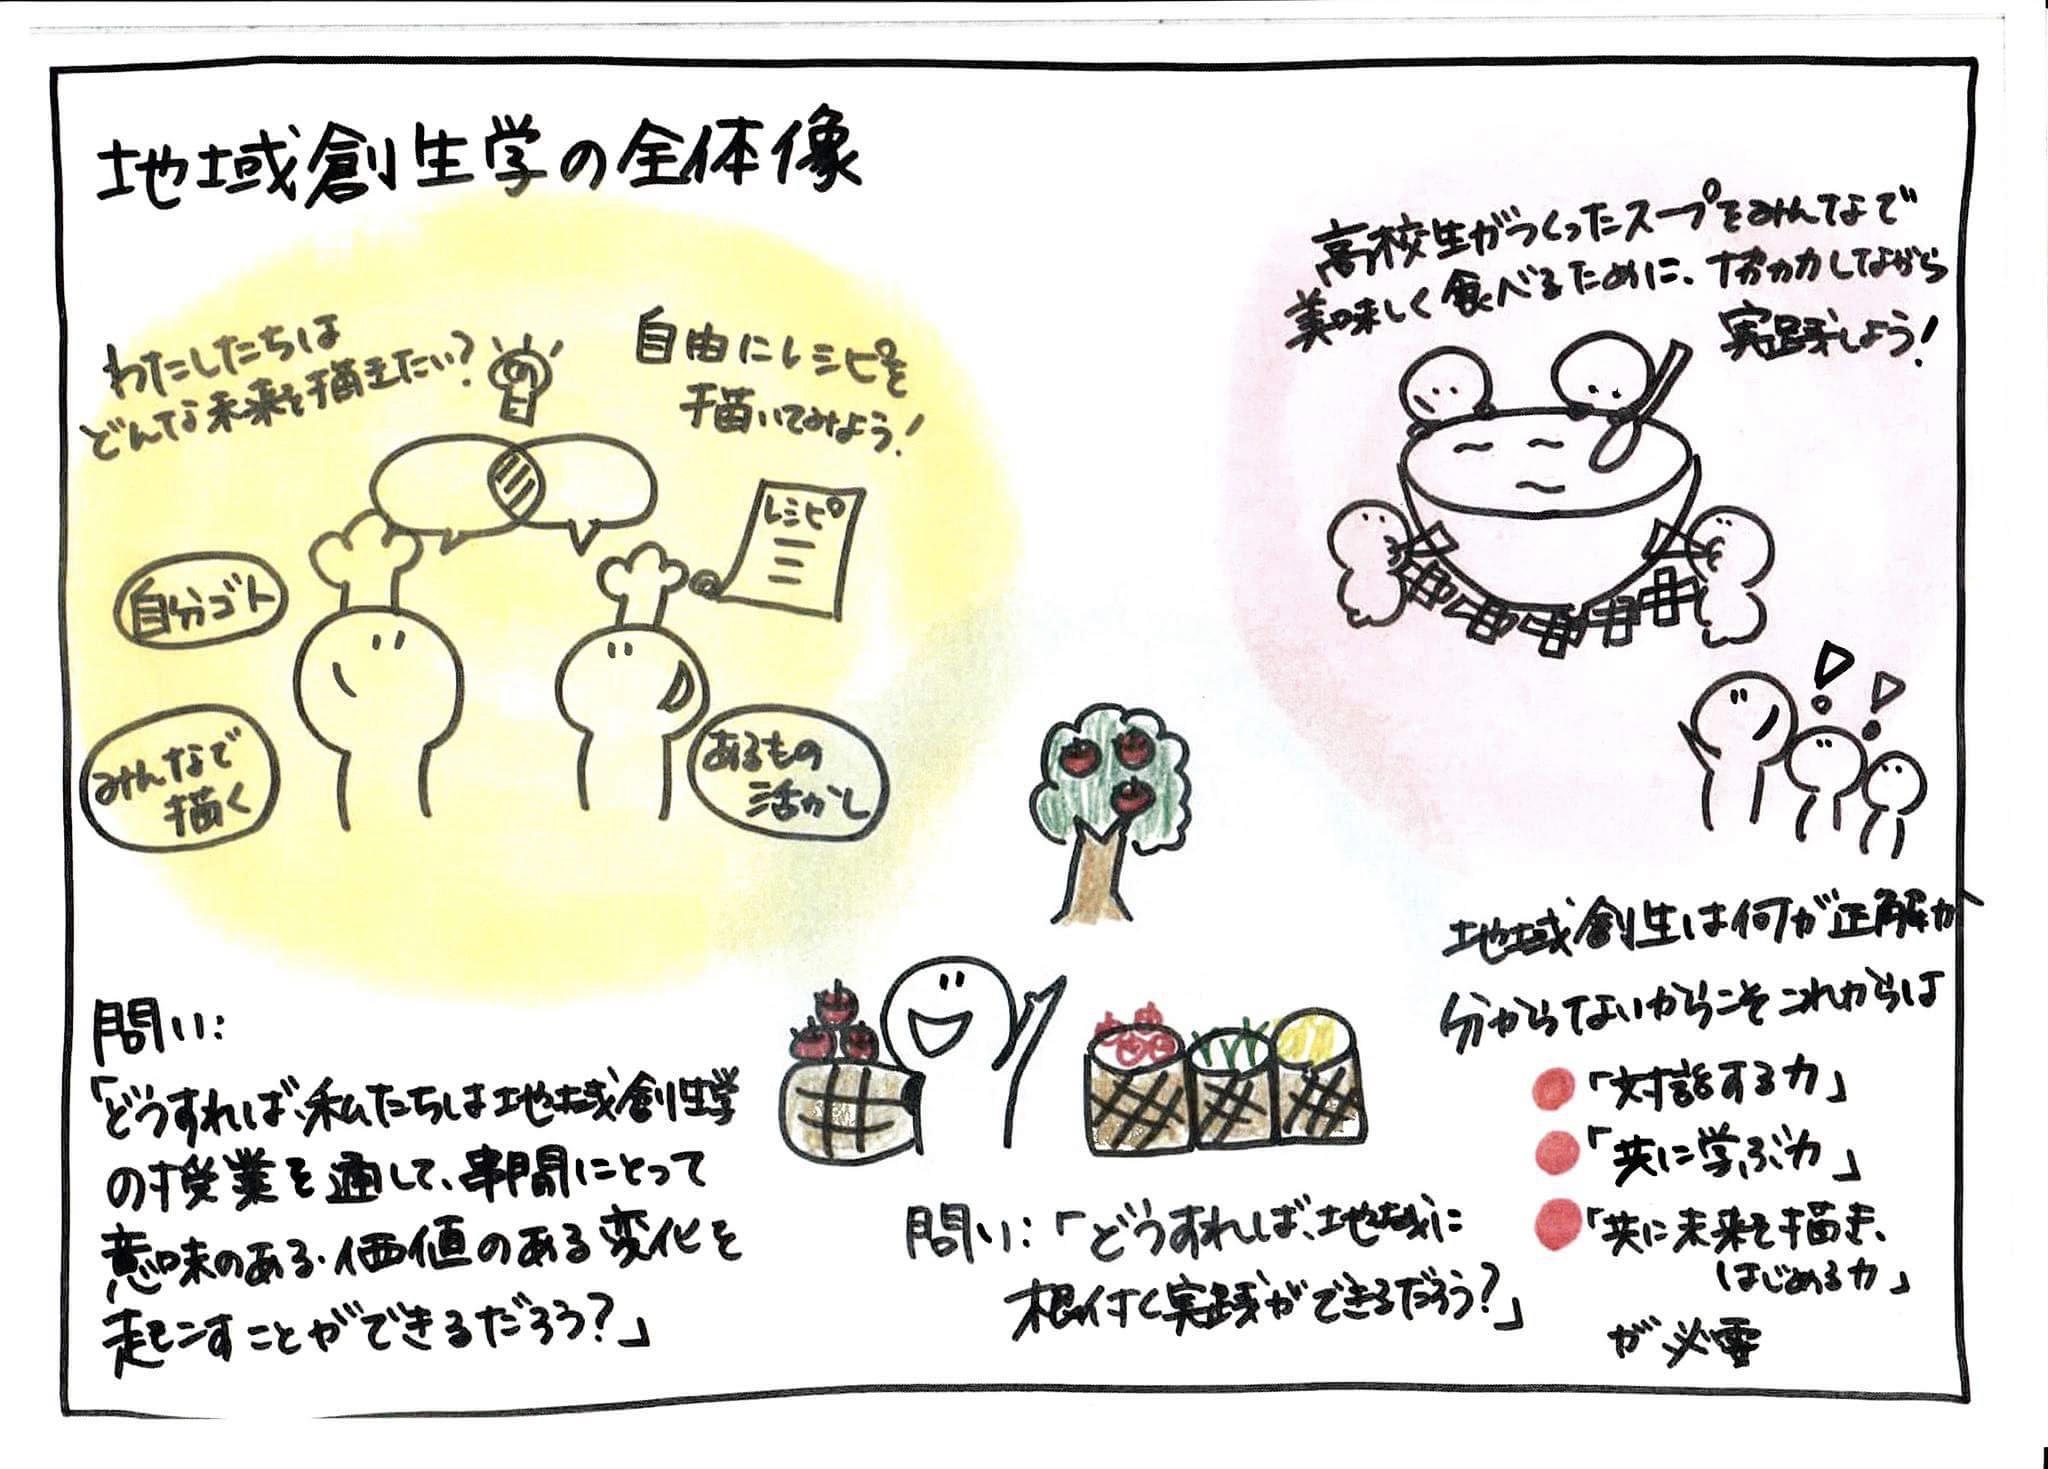 地域創生学の全体像
わたしたちは
どんな未来を描きたい?
自由にレシピを
描いてみよう!
レシピ
自分ゴト
みんなで
描く
あるもの
活かし
高校生がつくったスープをみんなで
美味しく食べるために、協力しながら
実践しよう!
問い:
「どうすれば、私たちは地域創生学
の授業を通して、串間にとって
意味のある・価値のある変化を
起こすことができるだろう?」
問い:「どうすれば、地域に
根付く実践ができるだろう?」
地域創生は何が正解か
分からないからこそこれからは
「対話する力」
「共に学ぶ力」
「共に未来を描き、
はじめる力」
が必要